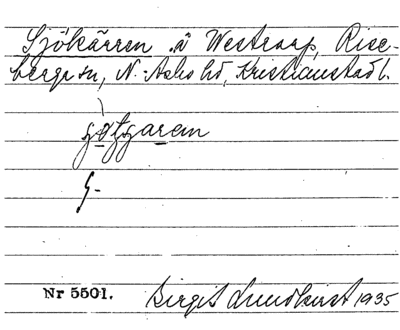 Sjökärren å Westraap, Rise-
berga sn, N. Åsbo hd, Kristianstad l.
G-
Nr 5501. Birgit Lundkvist 1935